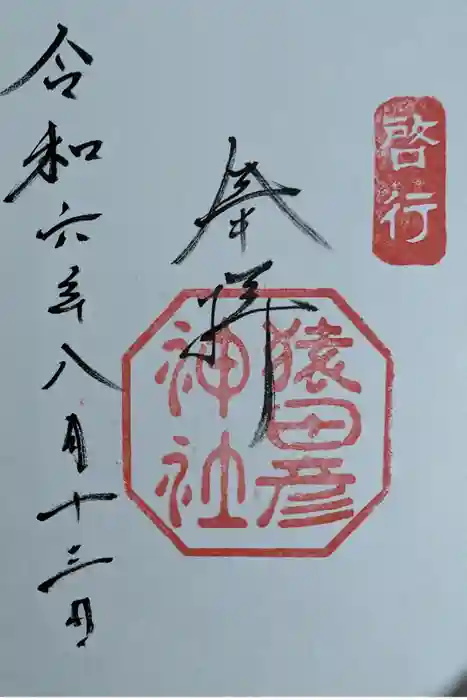 啓行
奉拝
猿田彦
神社
令和六年八月十三日